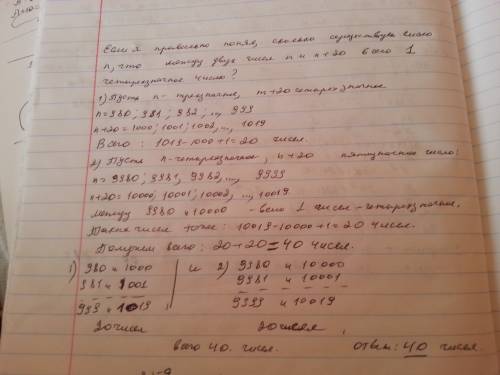 Если я правильно понял, сколько существует чисел
n, что между двух чисел n и n+20 всего 1
четырехзначное число?
1) Пусть n - трехзначное, n+20 четырехзначное
n=980; 981; 982; ..., 999
n+20=1000; 1001; 1002; ..., 1019
Всего: 1019-1000+1=20 чисел.
2) Пусть n-четырехзначное, n+20 пятизначное число:
n=9980; 9981, 9982, ..., 9999
n+20=10000; 10001; 10002, ..., 10019
между 9980 и 10000 - всего 1 число-четырехзначное,
Таких чисел тоже: 10019-10000+1=20 чисел.
Получим всего: 20+20=40 чисел.
1) 980 и 1000 и 2) 9980 и 10000
981 и 1001 9981 и 10001
999 и 1019, 9999 и 10019
20 чисел 20 чисел,
всего 40 чисел. Ответ: 40 чисел.